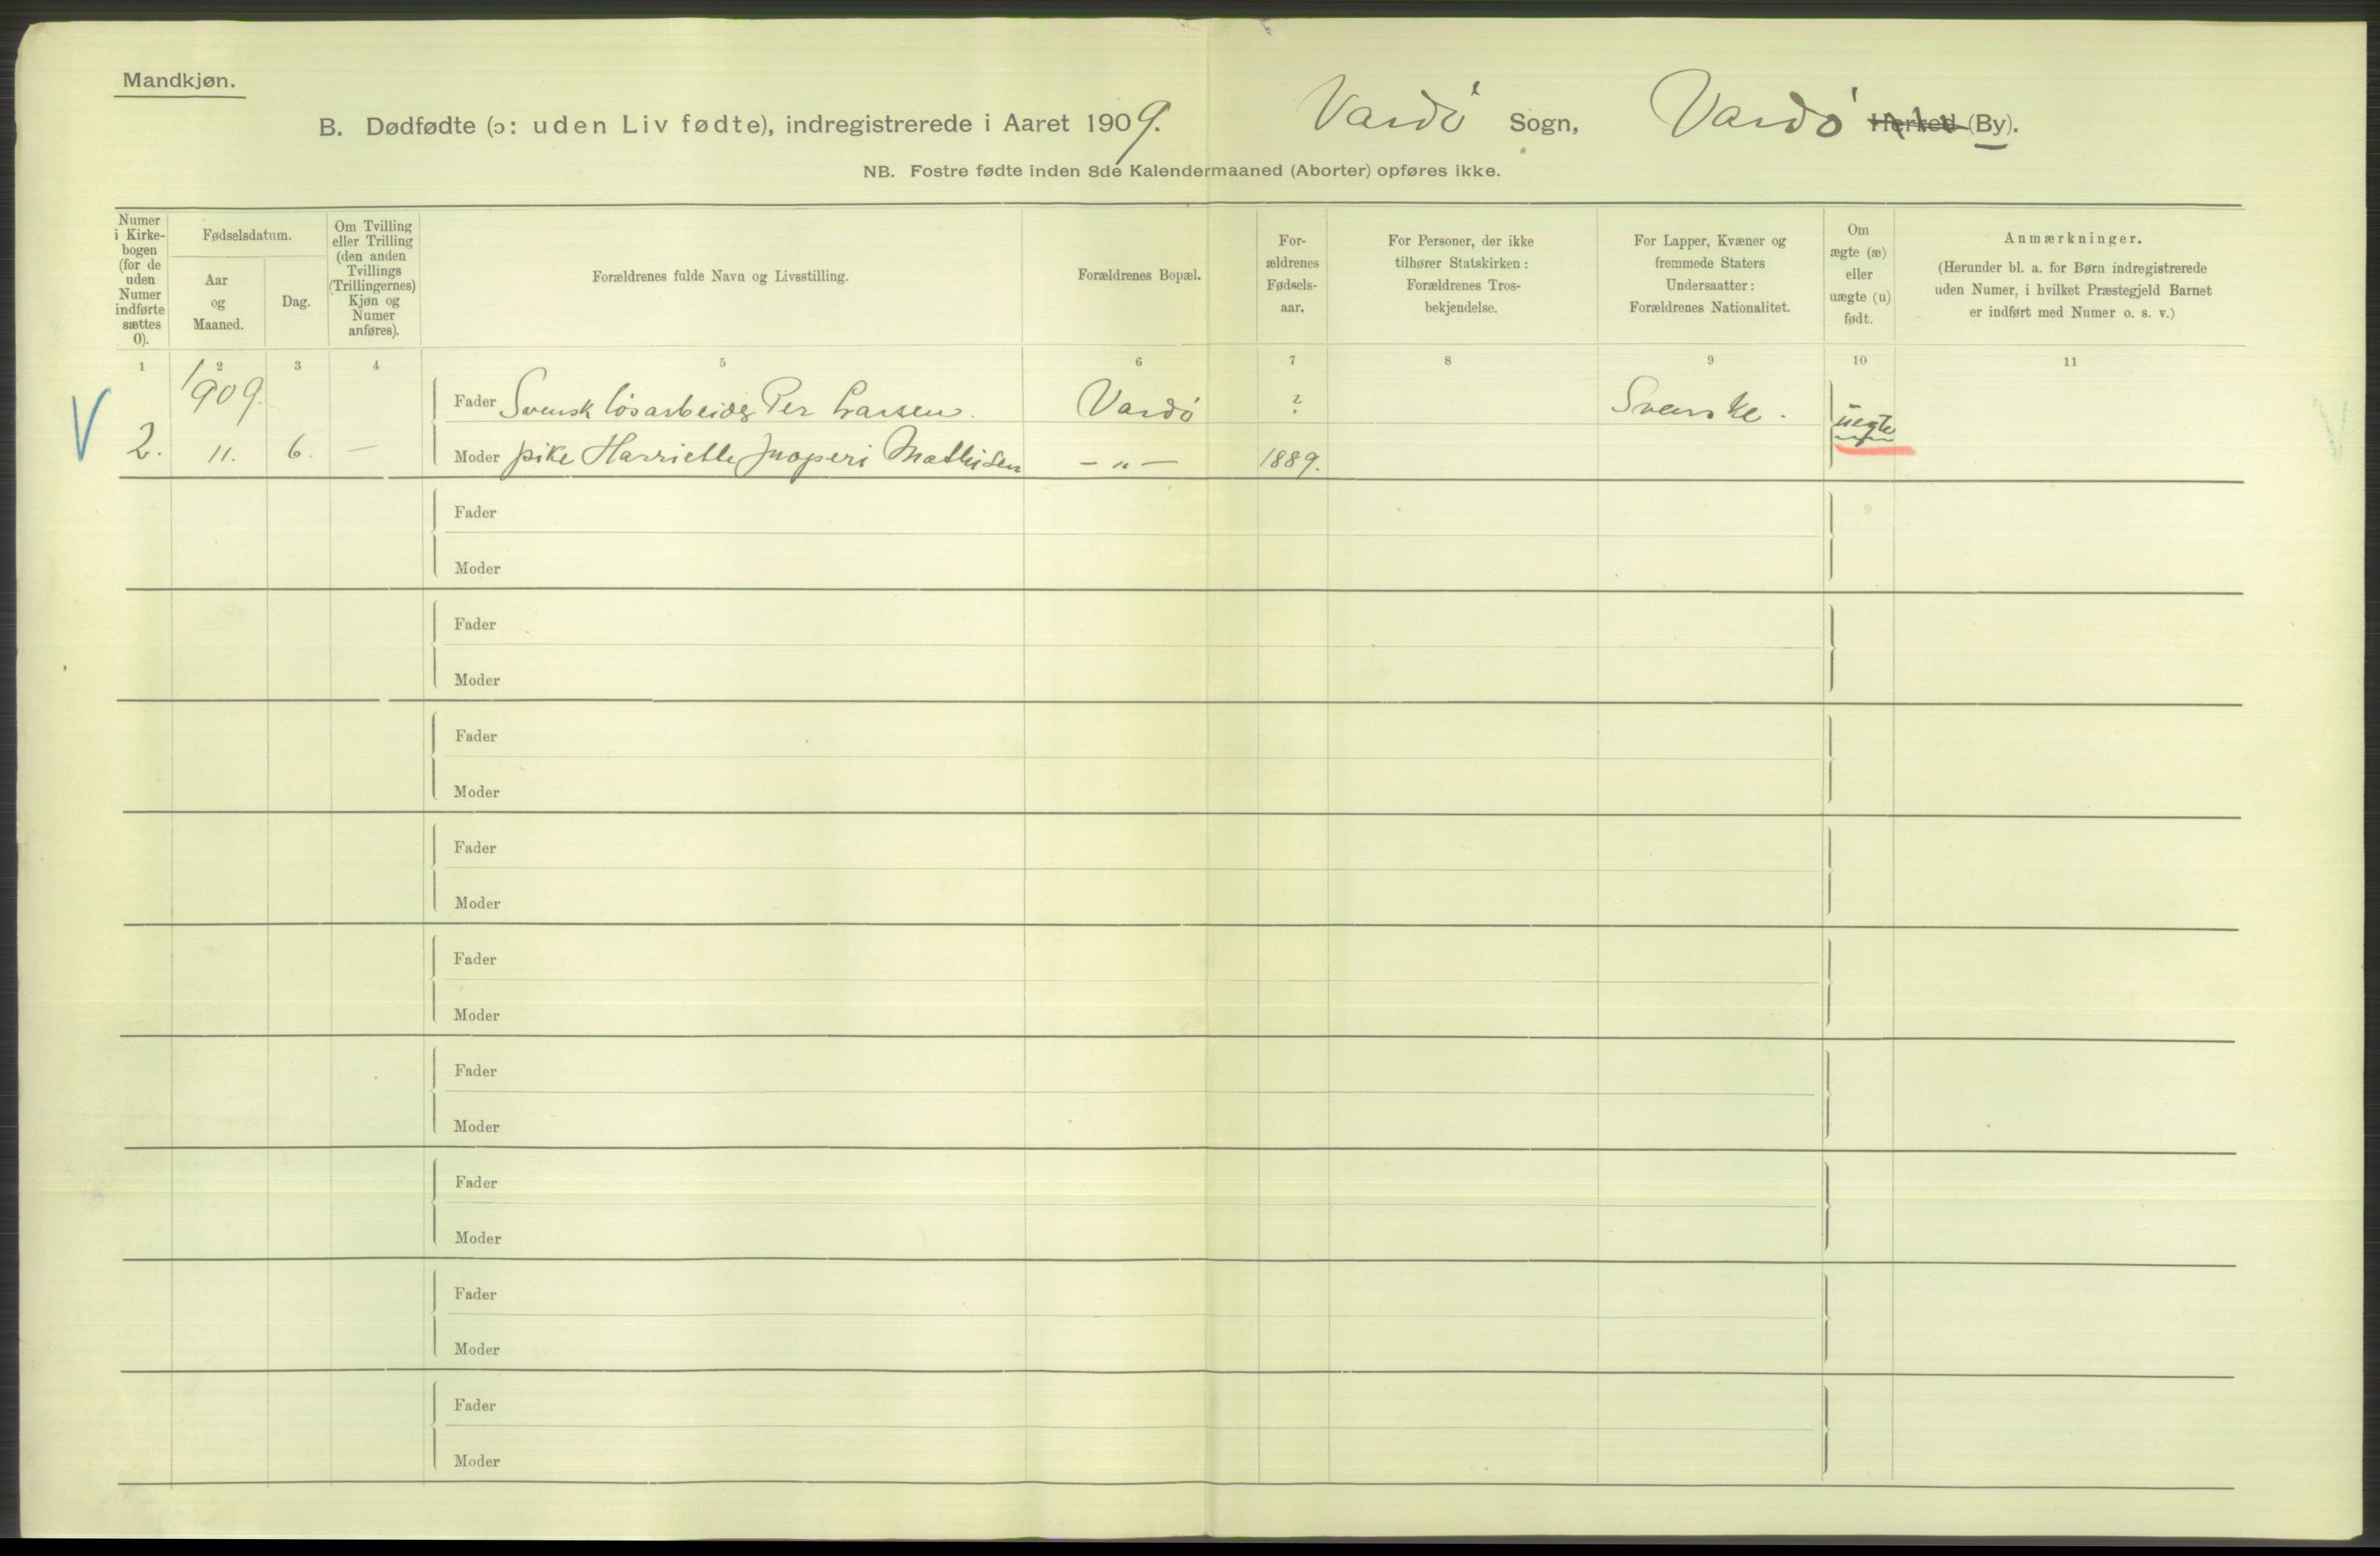 Mandkjøn.
B. Dødfødte (ɔ: uden Liv fødte), indregistrerede i Aaret 1909. Vardö Sogn, Vardö Herked (By).
NB. Fostre fødte inden 8de Kalendermaaned (Aborter) opføres ikke.
Numer i Kirke-bogen (for de uden Numer indførte sættes 0).
Fødselsdatum.
Aar og Maaned.
Dag.
Om Tvilling eller Trilling (den anden Tvillings (Trillingernes) Kjøn og Numer anføres).
Forældrenes fulde Navn og Livsstilling.
Forældrenes Bopæl.
For-ældrenes Fødsels-aar.
For Personer, der ikke tilhører Statskirken: Forældrenes Tros-bekjendelse.
For Lapper, Kvæner og fremmede Staters Undersaatter: Forældrenes Nationalitet.
Om ægte (æ) eller uægte (u) født.
Anmærkninger.
(Herunder bl. a. for Børn indregistrerede uden Numer, i hvilket Præstegjeld Barnet er indført med Numer o. s. v.)
1 2 3 4 5 6 7 8 9 10 11
1909. Fader Svensk løsarbeider Per Larsen. Vardö ? Svenske. uegte
V 2. 11. 6. — Moder pike Harriette Mathisen — " — 1889.
Fader
Moder
Fader
Moder
Fader
Moder
Fader
Moder
Fader
Moder
Fader
Moder
Fader
Moder
Fader
Moder
Fader
Moder